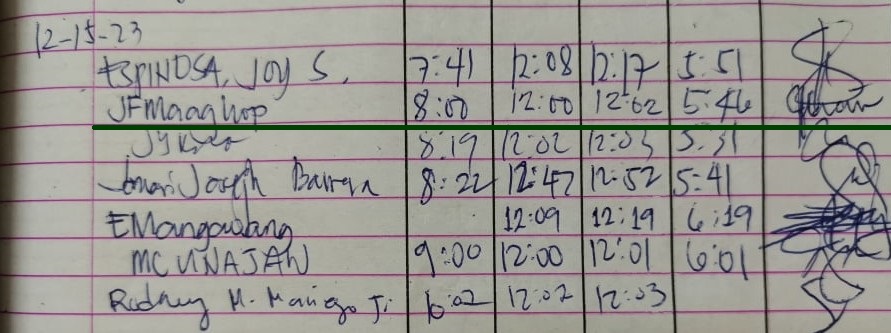 12-15-23
ESPINOSA, JOY S. 7:41 12:08 12:17 5:51
JFMaaghop 8:00 12:00 12:02 5:46
8:19 12:02 12:03 5:31
Joseph Barrera 8:22 12:47 12:52 5:41
EMangawang 12:09 12:19 6:19
MCUNAJAN 9:00 12:00 12:01 6:01
Rodney M. Maniego Jr. 10:02 12:02 12:03